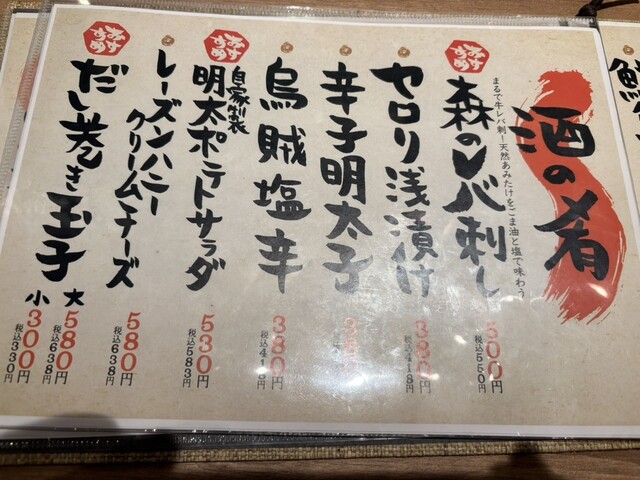 酒の肴
おすすめ
森のレバ刺し
まるで牛レバ刺！天然あみたけをごま油と塩で味わう
500円
税込550円
セロリ浅漬け
380円
税込418円
辛子明太子
烏賊塩辛
380円
税込418円
おすすめ
自家製
明太ポテトサラダ
530円
税込583円
レーズンハニー
クリームチーズ
580円
税込638円
おすすめ
だし巻き玉子
大
580円
税込638円
小
300円
税込330円